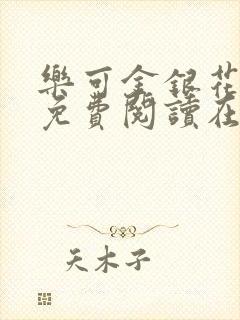 樂可金銀花
免費閱讀在
天木子